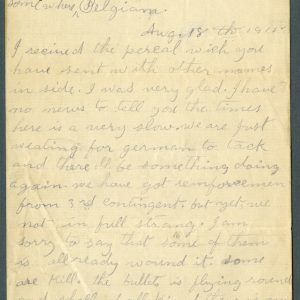 Somewhere, Belgian.
Aug. 18th 191
I recived the percal wich you
have sent with other names
in side. I was very glad. I have
no news to tell you the times
here is a very slow. we are just
weating for german to tack
and there ill be something doing
again. we have got reinforcemen
from 3rd contingent. but yet, we
not in full strang. I am
sorry to say that some of them
is allready wound it some
are kill. the bullets is flying round